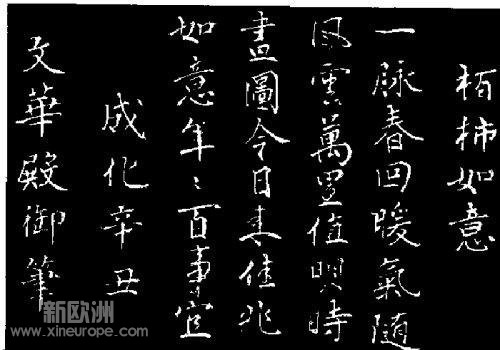 栢柿如意
一脉春回暖氣隨
風雲萬里值眀時
畫圖今日来佳兆
如意年〻百事宜
成化辛丑
文華殿御筆
新欧洲
www.xineurope.com